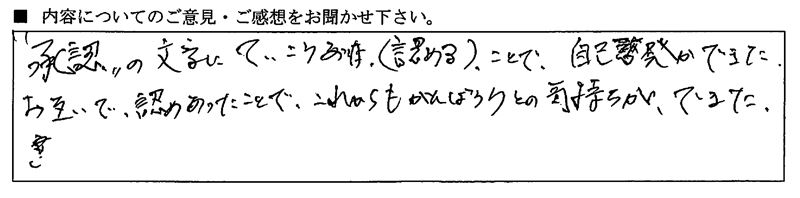 ■ 内容についてのご意見・ご感想をお聞かせ下さい。
"承認"の文字に て、こう (認める)、ことで、自己啓発ができた.
お互いで、認めあったことで、これからもがんばろうとの気持ちが、でました.